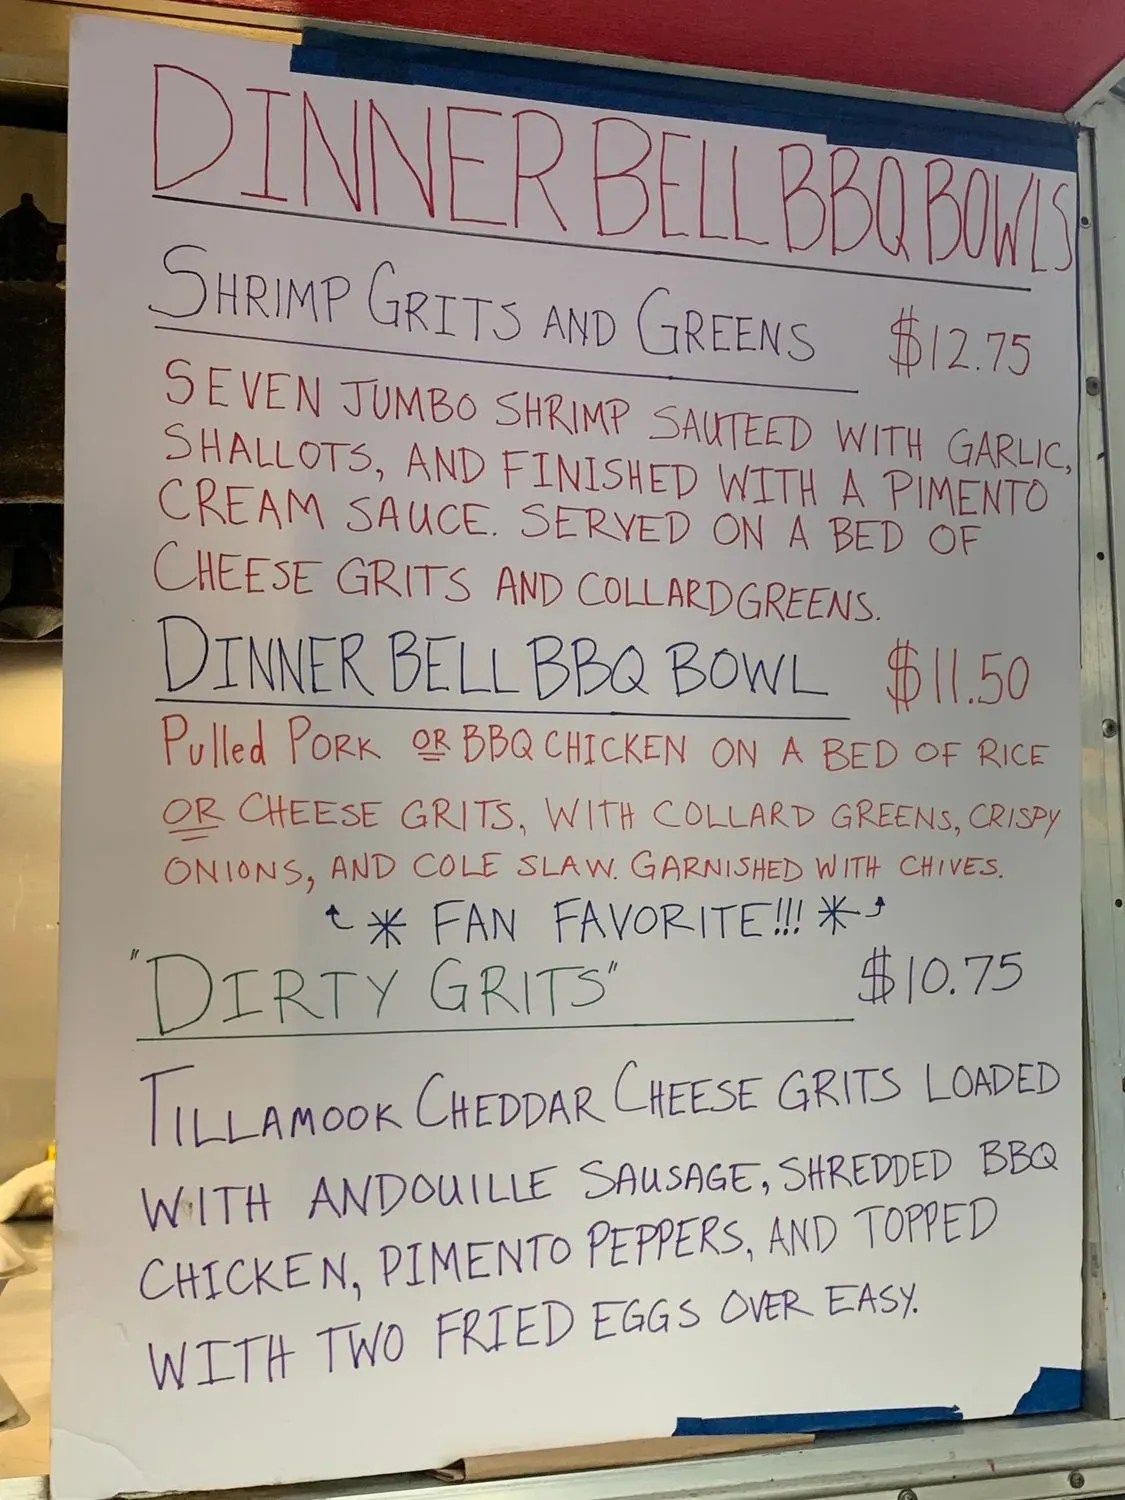 DINNER BELL BBQ BOWLS
SHRIMP GRITS AND GREENS $12.75
SEVEN JUMBO SHRIMP SAUTEED WITH GARLIC,
SHALLOTS, AND FINISHED WITH A PIMENTO
CREAM SAUCE. SERVED ON A BED OF
CHEESE GRITS AND COLLARD GREENS.
DINNER BELL BBQ BOWL $11.50
Pulled PORK OR BBQ CHICKEN ON A BED OF RICE
OR CHEESE GRITS, WITH COLLARD GREENS, CRISPY
ONIONS, AND COLE SLAW. GARNISHED WITH CHIVES.
* FAN FAVORITE!!! *
"DIRTY GRITS" $10.75
TILLAMOOK CHEDDAR CHEESE GRITS LOADED
WITH ANDOUILLE SAUSAGE, SHREDDED BBQ
CHICKEN, PIMENTO PEPPERS, AND TOPPED
WITH TWO FRIED EGGS OVER EASY.